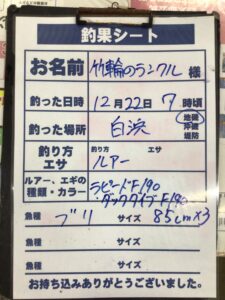 釣果シート
お名前 竹輪のランクル 様
釣った日時 12月22日 7時頃
釣った場所 白浜 地磯 沖磯 堤防
釣り方 エサ 釣り方 ルアー エサ
ルアー、エギの種類・カラー ラピードF190
・ダックダイブF190
魚種 ブリ サイズ 85cm×3
魚種 サイズ
魚種 サイズ
お持ち込みありがとうございました。